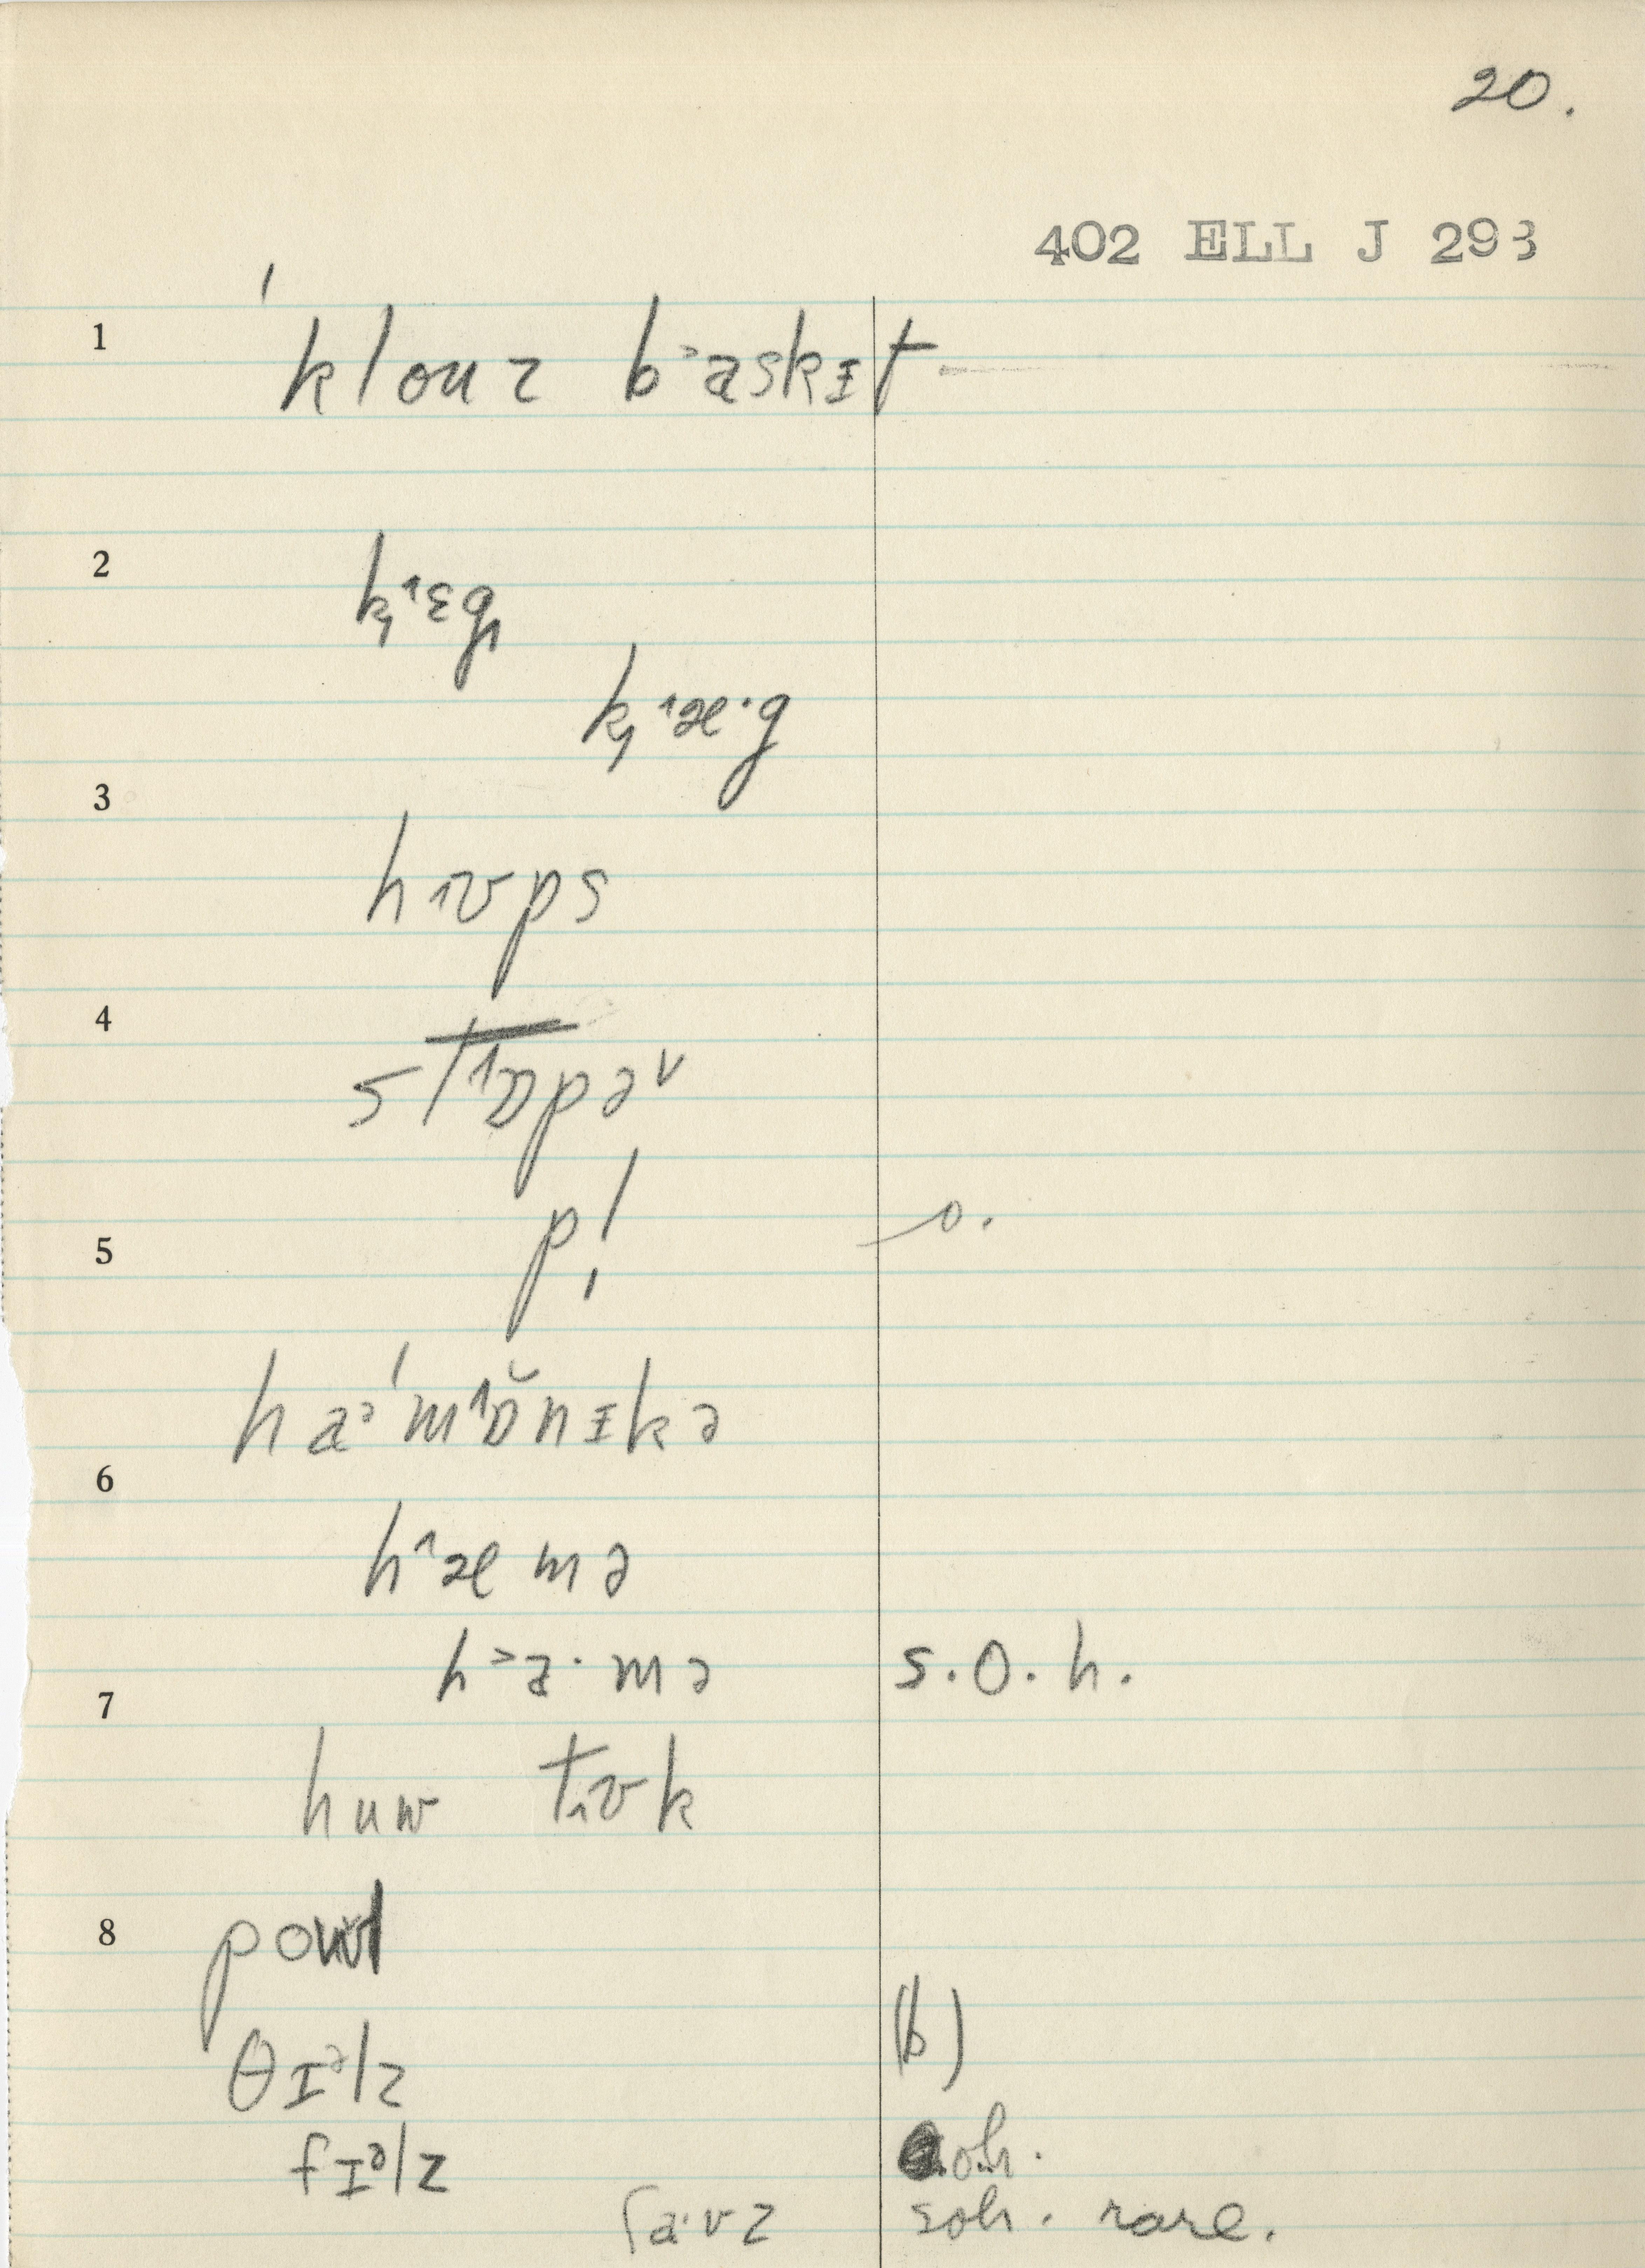 20.
402 ELL J 293
1 ˈklouz b˃askɪt
2 k̡˔ɛg̡
k̡˔æ·g
3 h˔ʊps
4 st˔ɒpəv
5 p! o.
haᵊˈm˔ɒ̆nɪkə
6 h˔æmə
h˃a·mə s.o.h.
7 huw t˔ʊk
8
θɪᵊlz (b)
fɪᵊlz o.h.
ʃa·vz soh. rare.